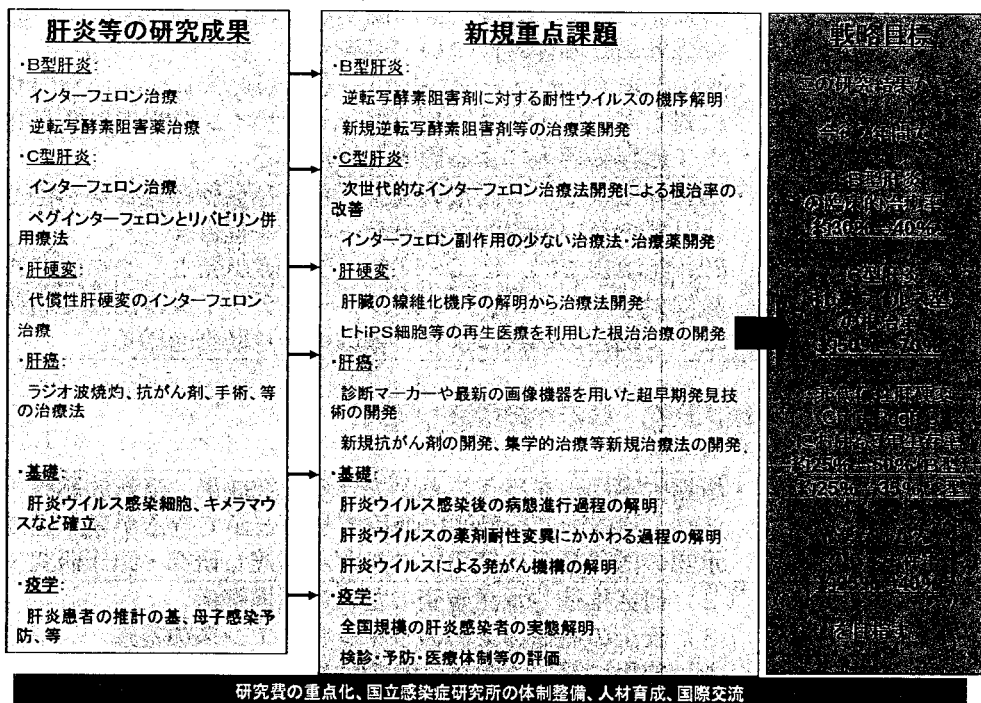 肝炎等の研究成果
・B型肝炎:
インターフェロン治療
逆転写酵素阻害薬治療
・C型肝炎:
インターフェロン治療
ペグインターフェロンとリバビリン併
用療法
・肝硬変:
代償性肝硬変のインターフェロン
治療
・肝癌:
ラジオ波焼灼、抗がん剤、手術、等
の治療法
・基礎:
肝炎ウイルス感染細胞、キメラマウ
スなど確立
・疫学:
肝炎患者の推計の基、母子感染予
防、等
新規重点課題
・B型肝炎:
逆転写酵素阻害剤に対する耐性ウイルスの機序解明
新規逆転写酵素阻害剤等の治療薬開発
・C型肝炎:
次世代的なインターフェロン治療法開発による根治率の
改善
インターフェロン副作用の少ない治療法・治療薬開発
・肝硬変:
肝臓の線維化機序の解明から治療法開発
ヒトiPS細胞等の再生医療を利用した根治治療の開発
・肝癌:
診断マーカーや最新の画像機器を用いた超早期発見技
術の開発
新規抗がん剤の開発、集学的治療等新規治療法の開発
・基礎:
肝炎ウイルス感染後の病態進行過程の解明
肝炎ウイルスの薬剤耐性変異にかかわる過程の解明
肝炎ウイルスによる発がん機構の解明
・疫学:
全国規模の肝炎感染者の実態解明
検診・予防・医療体制等の評価
戦略目標
B型肝炎
約30%→40%
の根治率
を目指す
研究費の重点化、国立感染症研究所の体制整備、人材育成、国際交流